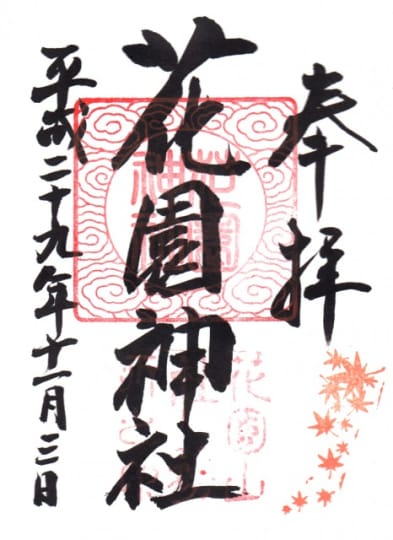 奉拝
花園神社
平成二十九年十一月三日
花園
神社
花園山